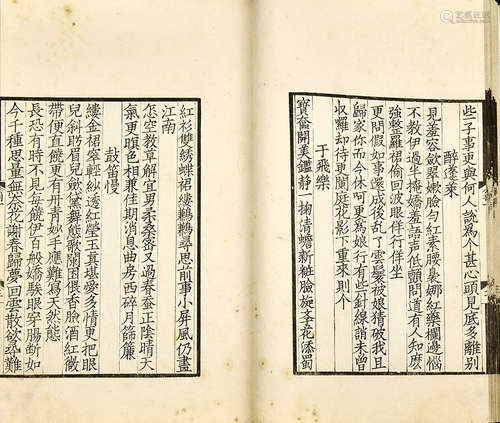 些子事更與何人說爲个甚心頭見底多離別
醉蓬萊
見羞容斂翠嫩臉勻紅素腰裊娜紅藥欄邊惱
不教伊過半掩嬌羞語聲低顫問道有人知麽
強整羅裙偷回波眼佯行佯坐
更問假如事還成後亂了雲鬟被娘猜破我且
歸家你而今休呵更爲娘行有些針線誚未曾
收囉却待更闌庭花影下重來則个
于飛樂
寶奩開美鑑靜一掬清蟾新粧臉旋學花添蜀
紅衫雙繡蝶裙縷鶼鶼尋思前事小屏風仍畫
江南
怎空教草解宜男柔桑密又過春蠶正陰晴天
氣更暝色相兼佳期消息曲房西碎月篩簾
鼓笛慢
縷金裙窣輕紗透紅瑩玉真堪愛多情更把眼
兒斜盻眉兒斂黛舞態歌闌困偎香臉酒紅微
帶便直饒更有丹青妙手應難寫天然態
長恐有時不見每饒伊百般嬌騃眼穿腸斷如
今千種思量無奈花謝春歸夢回雲散欲尋難